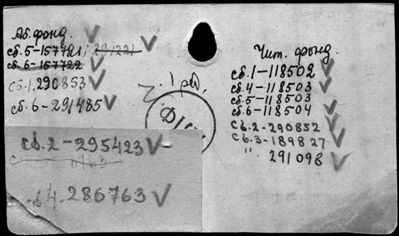 Аб. фонд.
сб.5-157721; 291221
сб.6-157722
сб.1, 290853
сб.6-291485
сб.2-295423
сб.4.286763
Чит. фонд.
сб.1-118502
сб.4-118503
сб.5-118503
сб.6-118504
сб.2-290852
сб.3-189827
" 291098